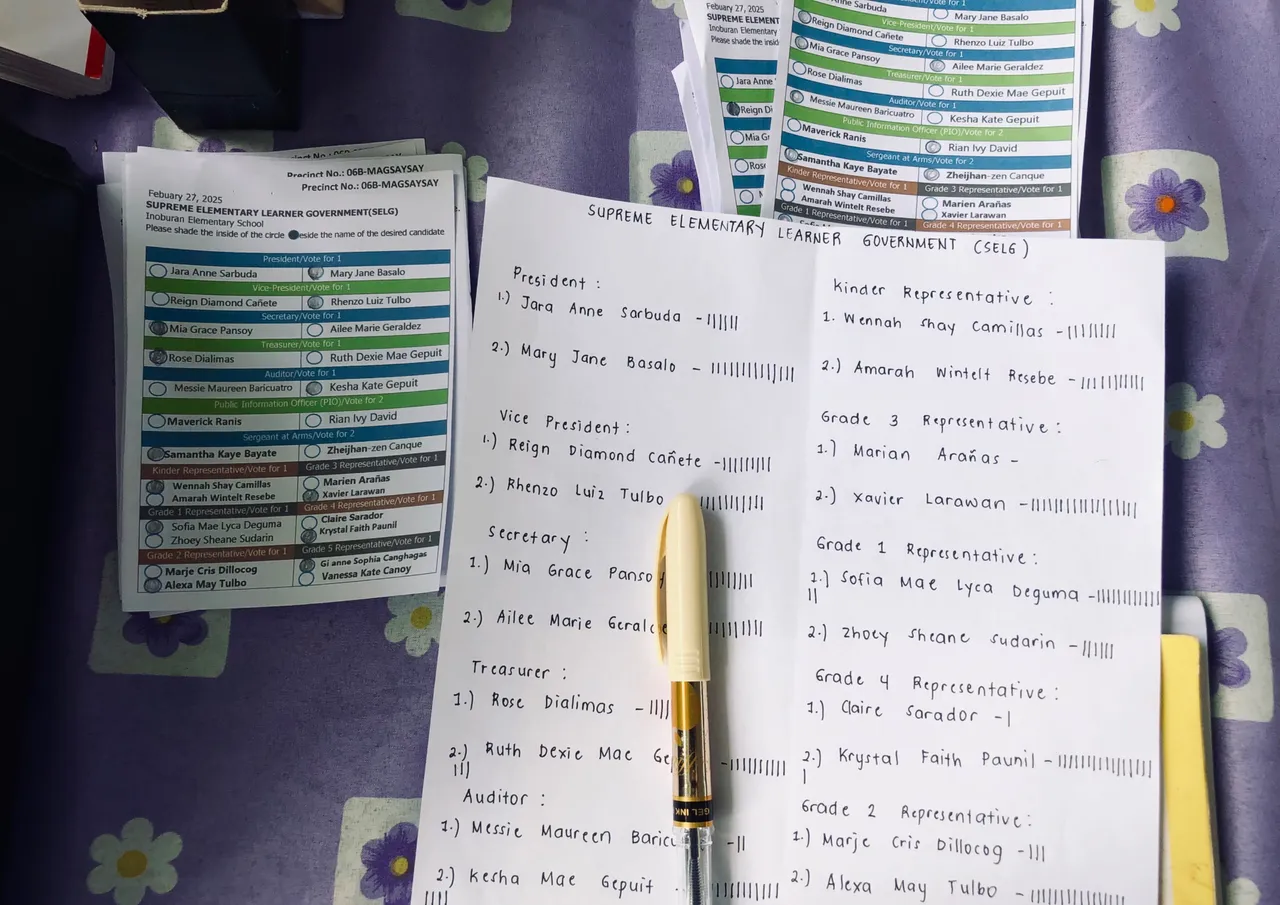 Precinct No.: 06B-MAGSAYSAY
Precinct No.: 06B-MAGSAYSAY
Febuary 27, 2025
SUPREME ELEMENTARY LEARNER GOVERNMENT(SELG)
Inoburan Elementary School
Please shade the inside of the circle eside the name of the desired candidate
President/Vote for 1
Jara Anne Sarbuda Mary Jane Basalo
Vice-President/Vote for 1
Reign Diamond Cañete Rhenzo Luiz Tulbo
Secretary/Vote for 1
Mia Grace Pansoy Ailee Marie Geraldez
Treasurer/Vote for 1
Rose Dialimas Ruth Dexie Mae Gepuit
Auditor/Vote for 1
Messie Maureen Baricuatro Kesha Kate Gepuit
Public Information Officer (PIO)/Vote for 2
Maverick Ranis Rian Ivy David
Sergeant at Arms/Vote for 2
Samantha Kaye Bayate Zheijhan-zen Canque
Kinder Representative/Vote for 1 Grade 3 Representative/Vote for 1
Wennah Shay Camillas Marien Arañas
Amarah Wintelt Resebe Xavier Larawan
Grade 1 Representative/Vote for 1 Grade 4 Representative/Vote for 1
Sofia Mae Lyca Deguma Claire Sarador
Zhoey Sheane Sudarin Krystal Faith Paunil
Grade 2 Representative/Vote for 1 Grade 5 Representative/Vote for 1
Marje Cris Dillocog Gi anne Sophia Canghagas
Alexa May Tulbo Vanessa Kate Canoy
Febuary 27, 2025
SUPREME ELEMENT
Inoburan Elementary
Please shade the insid
Jara Anne
Reign Di
Mia
Rose
Sarbuda Mary Jane Basalo
Vice-President/Vote for 1
Reign Diamond Cañete Rhenzo Luiz Tulbo
Secretary/Vote for 1
Mia Grace Pansoy Ailee Marie Geraldez
Treasurer/Vote for 1
Rose Dialimas Ruth Dexie Mae Gepuit
Auditor/Vote for 1
Messie Maureen Baricuatro Kesha Kate Gepuit
Public Information Officer (PIO)/Vote for 2
Maverick Ranis Rian Ivy David
Sergeant at Arms/Vote for 2
Samantha Kaye Bayate Zheijhan-zen Canque
Kinder Representative/Vote for 1 Grade 3 Representative/Vote for 1
Wennah Shay Camillas Marien Arañas
Amarah Wintelt Resebe Xavier Larawan
Grade 1 Representative/Vote for 1 Grade 4 Representative/Vote for 1
SUPREME ELEMENTARY LEARNER GOVERNMENT (SELG)
President :
1.) Jara Anne Sarbuda - ||||||
2.) Mary Jane Basalo - |||||||||||||
Vice President :
1.) Reign Diamond Cañete - |||||||||
2.) Rhenzo Luiz Tulbo ||||||||||
Secretary :
1.) Mia Grace Pansoy ||||||||
2.) Ailee Marie Geralde ||||||||||
Treasurer :
1.) Rose Dialimas - ||||
2.) Ruth Dexie Mae Ge - ||||||||||
|||
Auditor :
1.) Messie Maureen Baric - ||
2.) Kesha Mae Gepuit ||||||||||
||||
Kinder Representative :
1. Wennah Shay Camillas - ||||||||
2.) Amarah Wintelt Resebe - ||||||||||
Grade 3 Representative :
1.) Marian Arañas -
2.) Xavier Larawan - |||||||||||||||||
Grade 1 Representative :
1.) Sofia Mae Lyca Deguma - |||||||||||
||
2.) Zhoey Sheane Sudarin - ||||||
Grade 4 Representative :
1.) Claire Sarador - |
2.) Krystal Faith Paunil - ||||||||||||||||
|
Grade 2 Representative :
1.) Marje Cris Dillocog - |||
2.) Alexa May Tulbo - |||||||||||||||
GEL INK